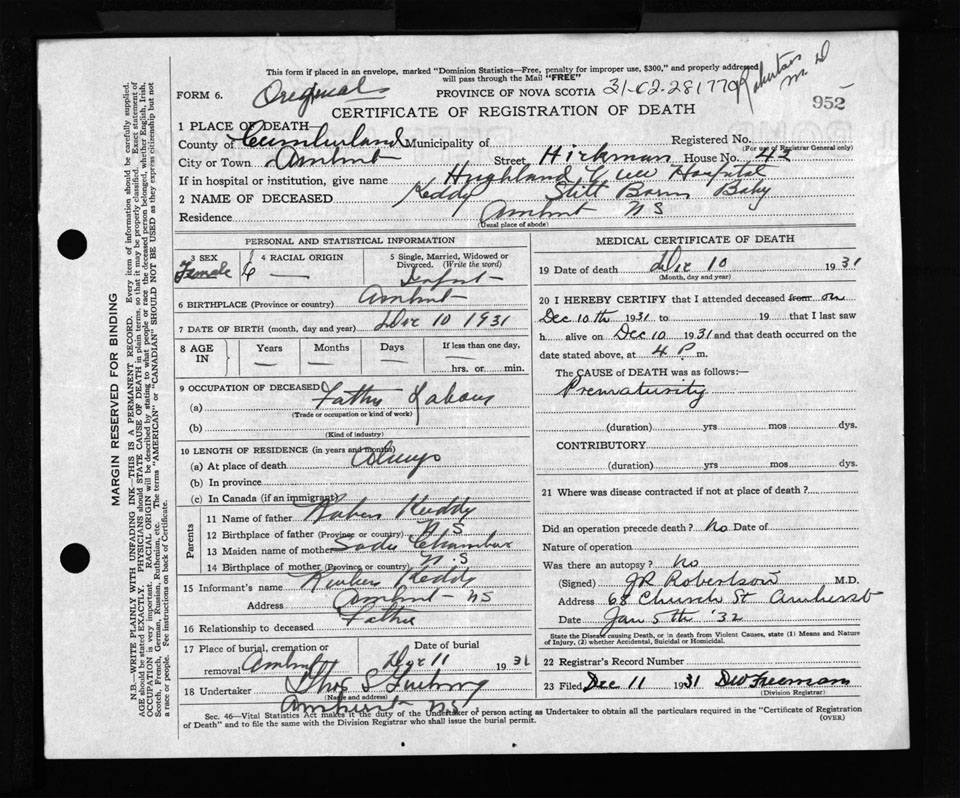 This form if placed in an envelope, marked "Dominion Statistics—Free, penalty for improper use, $300," and properly addressed
will pass through the Mail "FREE"
Robertson M D
FORM 6. Original PROVINCE OF NOVA SCOTIA 31-02-281770
952
CERTIFICATE OF REGISTRATION OF DEATH
1 PLACE OF DEATH—
County of Cumberland Municipality of Registered No.
(For use of Registrar General only)
City or Town Amherst Street Hickman House No. 43
If in hospital or institution, give name Highland View Hospital
2 NAME OF DECEASED Keddy Still Born Baby
Residence Amherst N S
(Usual place of abode)
PERSONAL AND STATISTICAL INFORMATION
3 SEX 4 RACIAL ORIGIN 5 Single, Married, Widowed or
Divorced. (Write the word)
Female Infant
6 BIRTHPLACE (Province or country) Amherst
7 DATE OF BIRTH (month, day and year) Dec 10 1931
8 AGE IN Years Months Days If less than one day,
— — — hrs. or min.
9 OCCUPATION OF DECEASED
(a) Father Labour
(Trade or occupation or kind of work)
(b)
(Kind of industry)
10 LENGTH OF RESIDENCE (in years and months)
(a) At place of death
(b) In province
(c) In Canada (if an immigrant)
Parents
11 Name of father Keddy
12 Birthplace of father (Province or country) N S
13 Maiden name of mother Sadie Chambers
14 Birthplace of mother (Province or country) N. S
15 Informant's name Keddy
Address Amherst NS
16 Relationship to deceased Father
17 Place of burial, cremation or Date of burial
removal Amherst Dec 11 1931
18 Undertaker Thos S
(Name and address)
Amherst NS
MEDICAL CERTIFICATE OF DEATH
19 Date of death Dec 10 1931
(Month, day and year)
20 I HEREBY CERTIFY that I attended deceased from on
Dec 10th 1931 to 19 that I last saw
h alive on Dec 10 1931 and that death occurred on the
date stated above, at 4 P. m.
The CAUSE of DEATH was as follows:—
Prematurity
(duration) yrs mos dys.
CONTRIBUTORY
(duration) yrs mos dys.
21 Where was disease contracted if not at place of death?
Did an operation precede death? No Date of
Nature of operation
Was there an autopsy? No
(Signed) J R Robertson M.D.
Address 68 Church St Amherst
Date Jan 5th '32
State the Disease causing Death, or in death from Violent Causes, state (1) Means and Nature
of Injury, (2) whether Accidental, Suicidal or Homicidal.
22 Registrar's Record Number
23 Filed Dec 11 1931 Freeman
(Division Registrar)
Sec. 46—Vital Statistics Act makes it the duty of the Undertaker or person acting as Undertaker to obtain all the particulars required in the "Certificate of Registration
of Death" and to file the same with the Division Registrar who shall issue the burial permit.
(OVER)
MARGIN RESERVED FOR BINDING
N.B.—WRITE PLAINLY WITH UNFADING INK—THIS IS A PERMANENT RECORD. Every item of information should be carefully supplied.
AGE should be stated EXACTLY. PHYSICIANS should STATE CAUSE OF DEATH in plain terms, so that it may be properly classified. Exact statement of
OCCUPATION is very important. RACIAL ORIGIN will be described by stating to what people or race the deceased person belonged, whether English, Irish,
Scotch, French, German, Russian, Ruthenian, etc. The terms "AMERICAN" or "CANADIAN" SHOULD NOT BE USED as they express citizenship but not
a race or people. See instructions on back of Certificate.